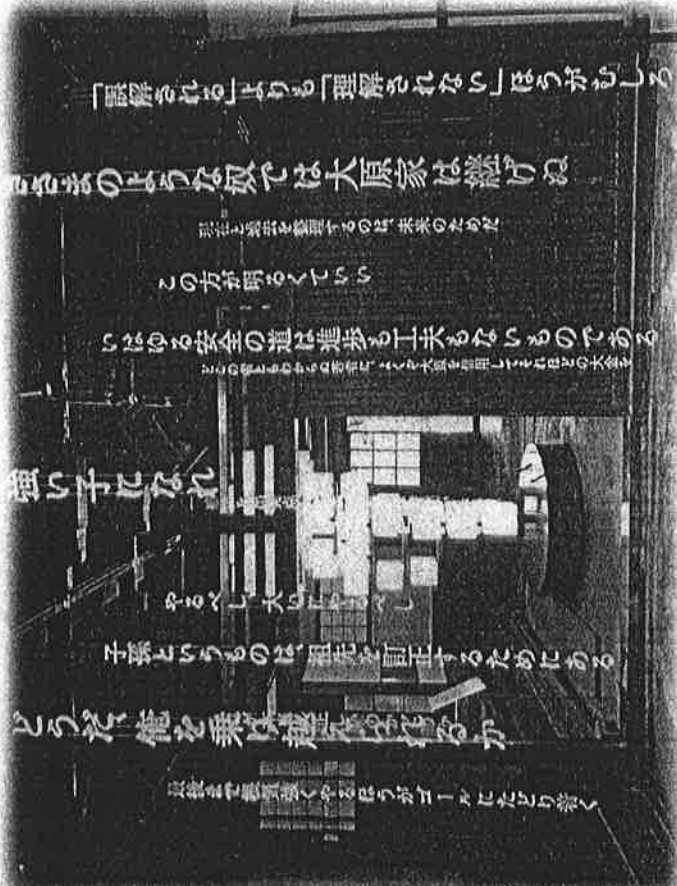 「誤解される」よりも「理解されない」ほうがむしろ
きさまのような奴では大原家は継げぬ
現在と過去を整理するのは、未来のためだ
この方が明るくていい
いはゆる安全の道は進歩も工夫もないものである
強い子になれ
やるべし、大いにやるべし
子孫というものは、祖先を訂正するためにある
どうだ、俺を乗り越えられるか
最後まで根気強くやるほうがゴールにたどり着く